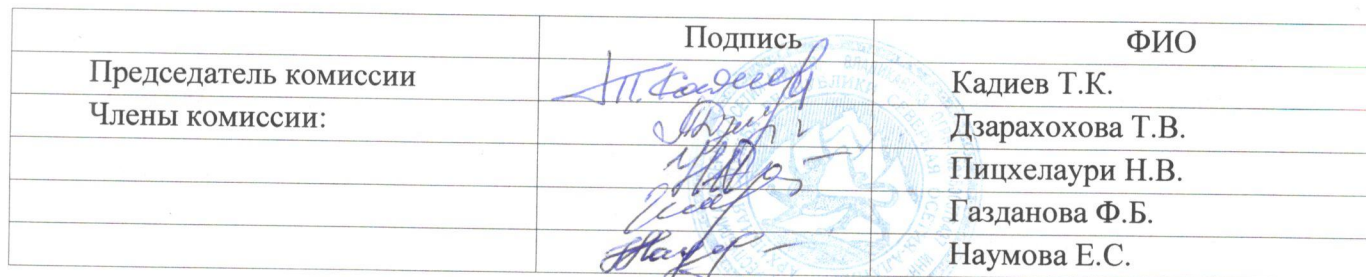 Подпись ФИО
Председатель комиссии Кадиев Т.К.
Члены комиссии: Дзарахохова Т.В.
Пицхелаури Н.В.
Газданова Ф.Б.
Наумова Е.С.